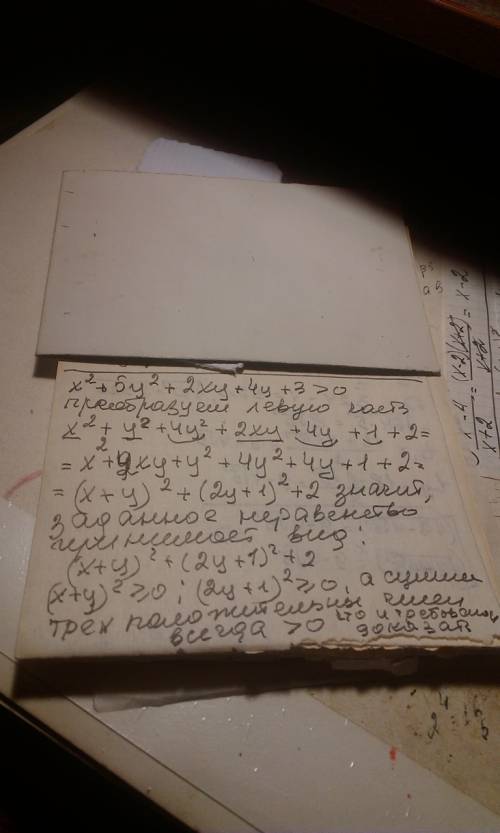 x² + 5y² + 2xy + 4y + 3 > 0
преобразуем левую часть
x² + y² + 4y² + 2xy + 4y + 1 + 2 =
= x² + 2xy + y² + 4y² + 4y + 1 + 2 =
= (x + y)² + (2y + 1)² + 2 значит,
заданное неравенство
принимает вид:
(x + y)² + (2y + 1)² + 2
(x + y)² ≥ 0; (2y + 1)² ≥ 0, а сумма
трех положительны чисел
всегда > 0 что и требовалось
доказать
x - 4 = (x-2)(x+2) = x - 2
x + 2